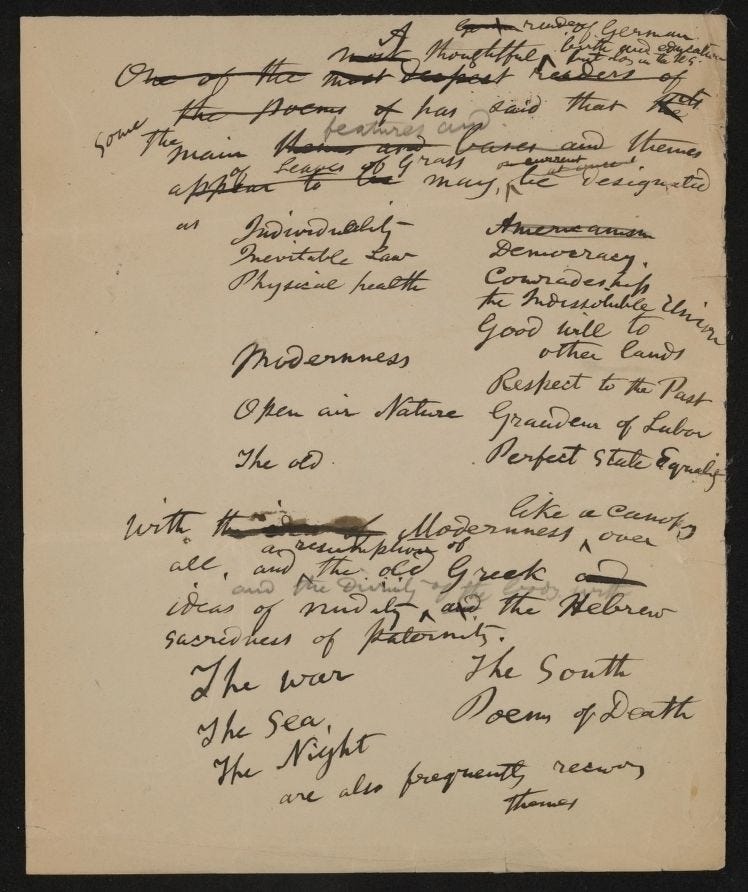 A reader of German
most thoughtful birth and education
but long in the U S.
One of the most deepest readers of
the Poems of has said that the its
some the features and
main themes and bases and themes
of Leaves of Grass or current
appear to be may, be designated
as Individuality Americanism
Inevitable Law Democracy.
Physical health Comradeship
the Indissoluble Union
Good will to
Modernness other lands
Respect to the Past
Open air Nature Grandeur of Labor
The old Perfect State Equality
like a canopy
With the idea of Modernness, over
a resumption of
all, and the old Greek and
and the divinity of the Gods with
ideas of nudity, and the Hebrew
sacredness of paternity.
The war The South
The Sea, Poems of Death
The Night
are also frequently recurring
themes